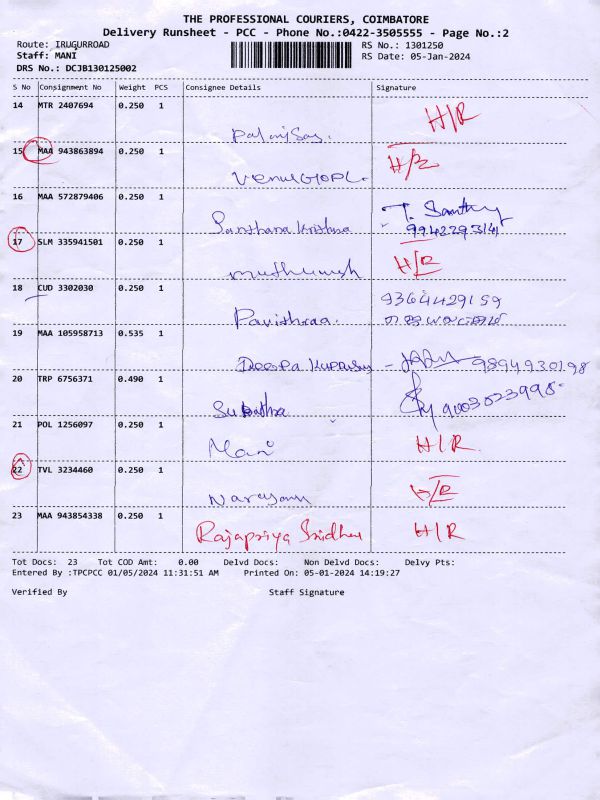 THE PROFESSIONAL COURIERS, COIMBATORE
Delivery Runsheet - PCC - Phone No.:0422-3505555 - Page No.:2
Route: IRUGURROAD RS No.: 1301250
Staff: MANI RS Date: 05-Jan-2024
DRS No.: DCJB130125002
S No Consignment No Weight PCS Consignee Details Signature
14 MTR 2407694 0.250 1 H/R
15 MAA 943863894 0.250 1 H/R
Venugopl.
16 MAA 572879406 0.250 1
Santhana Krishna 9942293141
17 SLM 335941501 0.250 1 H/R
18 CUD 3302030 0.250 1 9364429159
Pavithraa.
19 MAA 105958713 0.535 1
Deepa 9894930198
20 TRP 6756371 0.490 1
9003523998
21 POL 1256097 0.250 1 H/R
Mani
22 TVL 3234460 0.250 1 H/R
23 MAA 943854338 0.250 1
Rajapriya Sridhar H/R
Tot Docs: 23 Tot COD Amt: 0.00 Delvd Docs: Non Delvd Docs: Delvy Pts:
Entered By :TPCPCC 01/05/2024 11:31:51 AM Printed On: 05-01-2024 14:19:27
Verified By Staff Signature